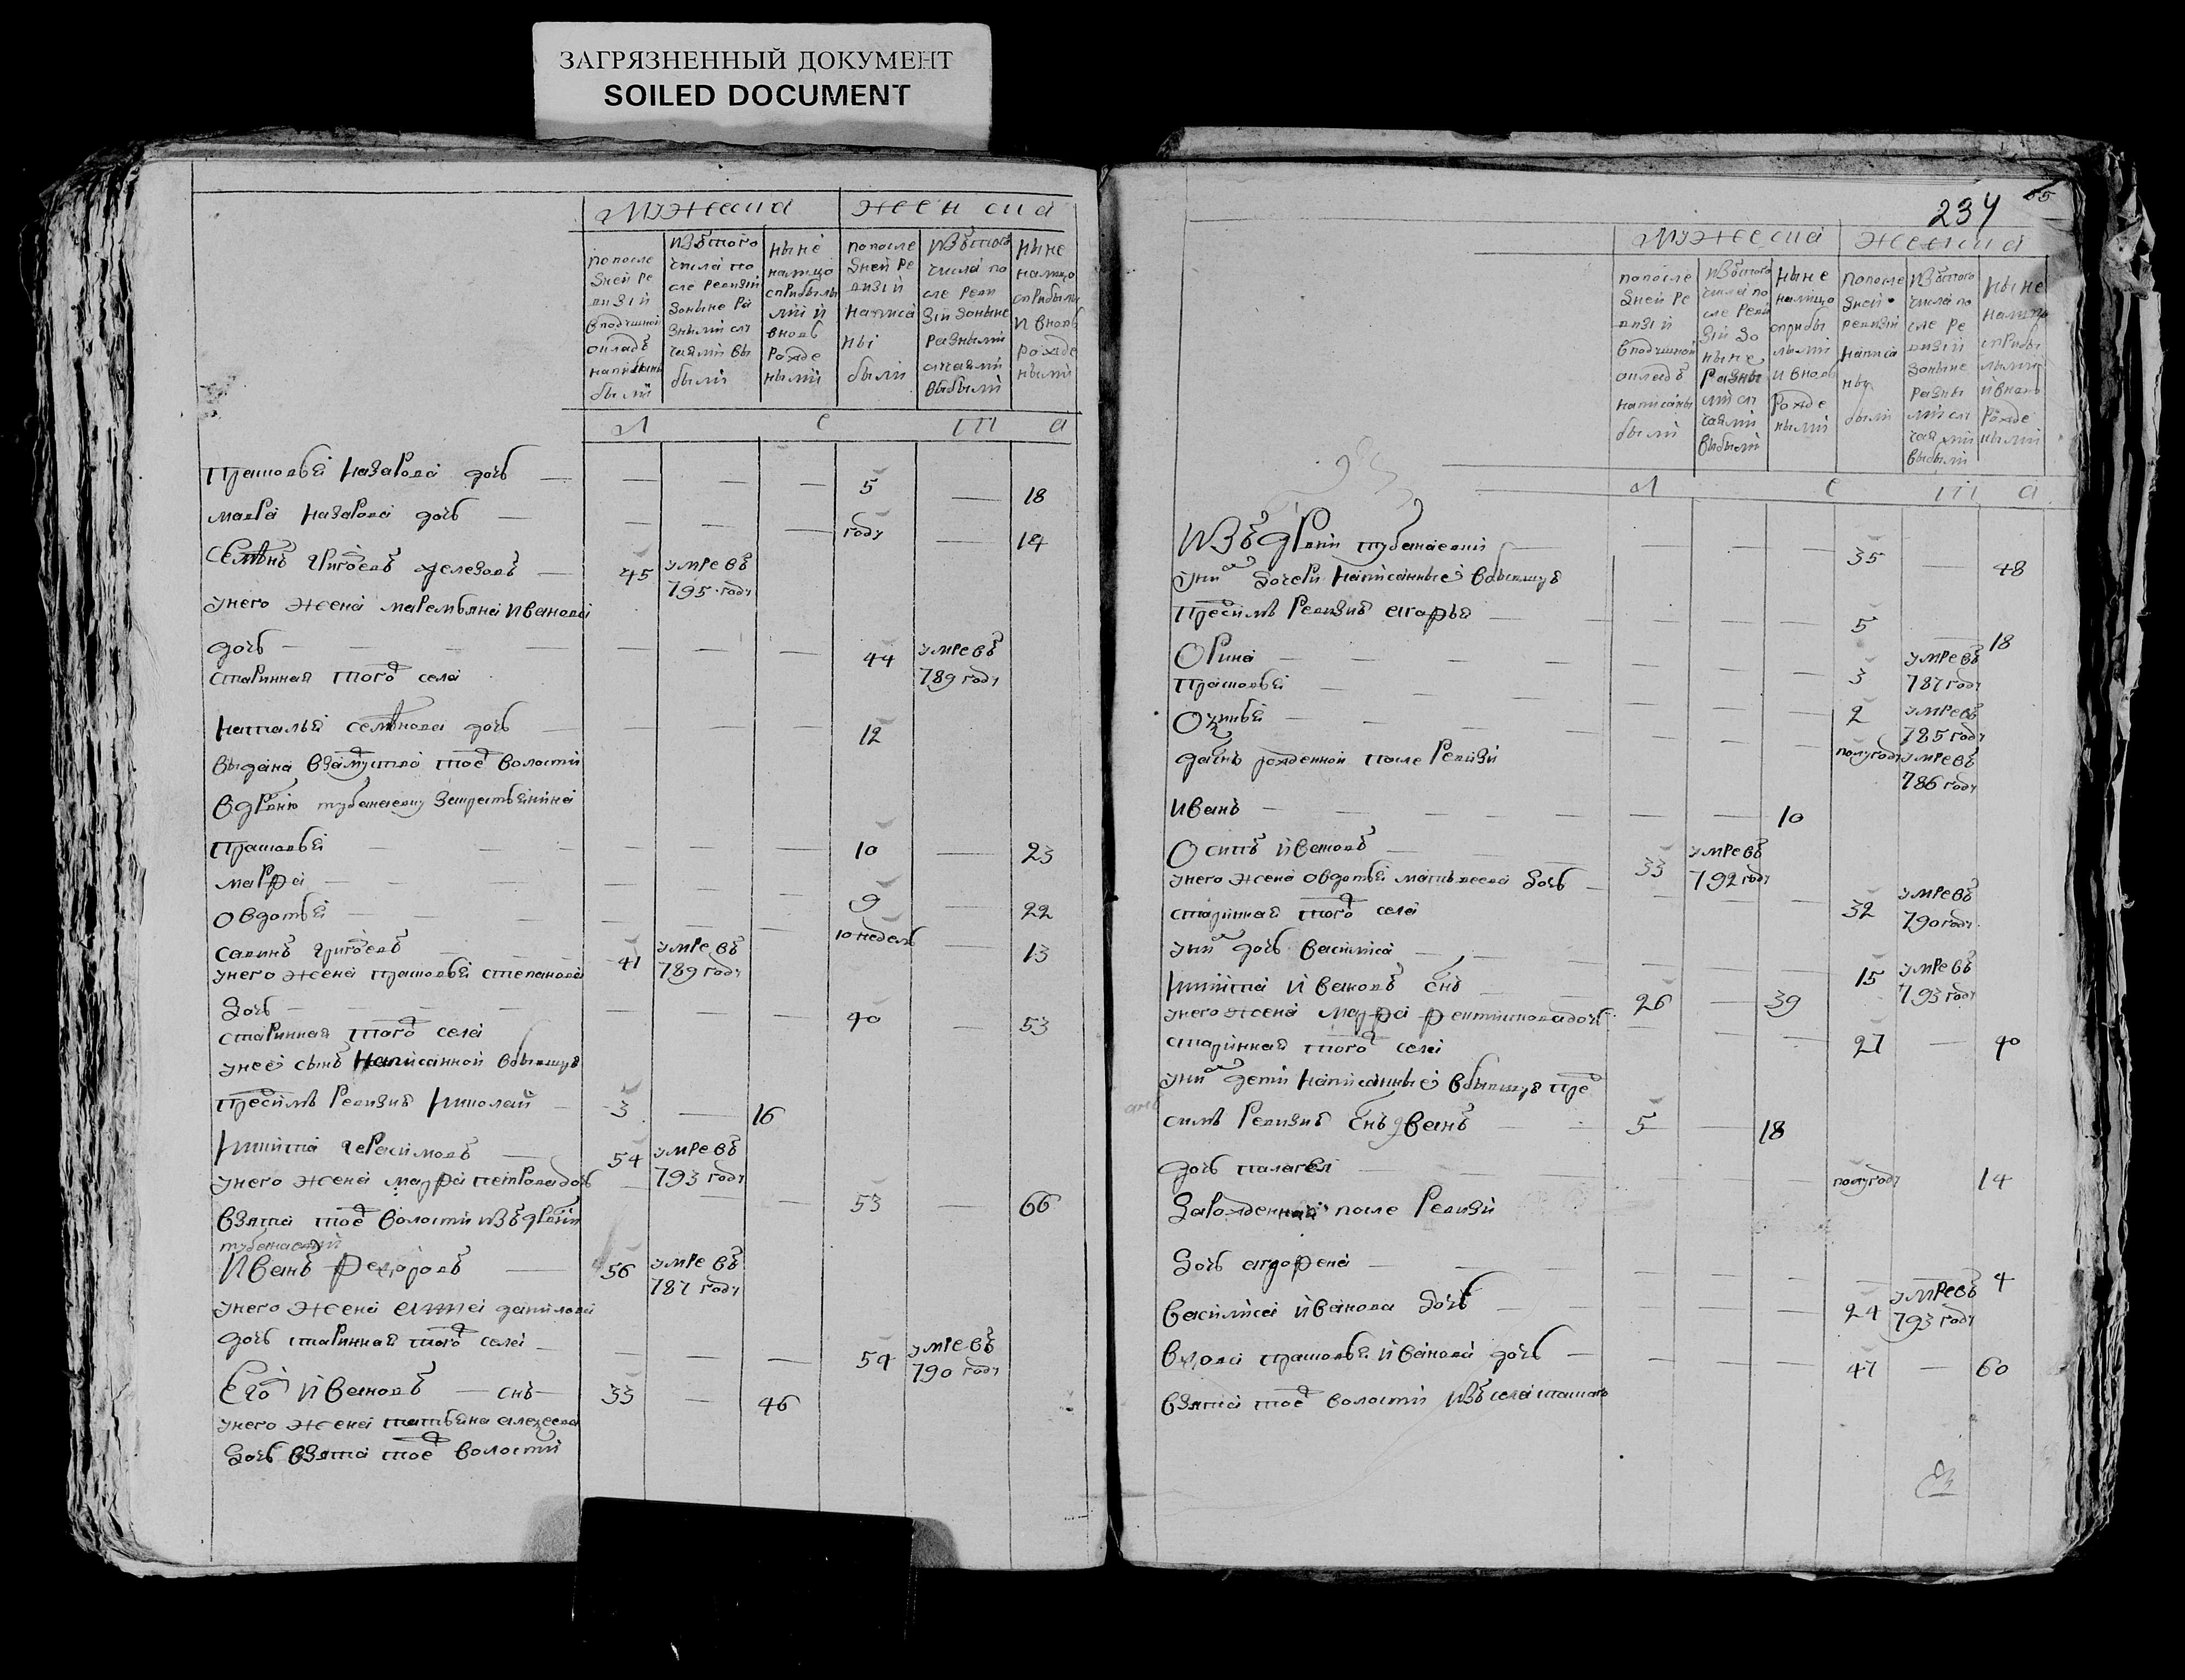 ЗАГРЯЗНЕННЫЙ ДОКУМЕНТ
SOILED DOCUMENT
мужеска женска
по после дней ре визiи в подушной окладъ написаны были
изъ того числа по сле ревизiи до ныне ра зными слу чаями вы были
ныне налицо с прибылы ми и вновь рожде ными
по после дней ре визiи написа ны были
изъ того числа по сле реви зiи доныне разными случаями выбыли
ныне налицо с прибылы и вновь рожде ными
л е т а
прасковья назарова дочь — — — — 5 — 18
мавра назарова дочь — — — — году — 14
семенъ григоевъ железовъ — 45 умре въ 795 году
у него жена маремьяна иванова
дочь — — — — 44 умре въ 789 году
старинная того села
наталья семенова дочь — — — — 12
выдана взамуство тое волости
в дрвню тубанаевку за крестьянина
прасковья — — — — 10 — 23
марфа — — — — 9 — 22
овдотья — — — — 10 недель — 13
савинъ григоевъ — 41 умре въ 789 году
у него жена прасковья степанова
дочь — — — — 40 — 53
старинная того села
у нее сынъ написанной в бывшую
пред симъ ревизию николай — 3 — 16
никита герасимовъ — 54 умре въ 793 году
у него жена марфа петрова дочь — — — 53 — 66
взята тое волости изъ дрвни
тубанаевки
иванъ федоровъ — 56 умре въ 787 году
у него жена анна данилова
дочь старинная того села — — — — 54 умре въ 790 году
его ивановъ — снъ — 33 — 46
у него жена татьяна алексеева
дочь взята тое волости
234
65
мужеска женска
по после дней ре визiи в подушной окладъ написаны были
изъ того числа по сле реви зiи до ныне разны ми слу чаями выбыли
ныне налицо с прибы лыми и вновь рожде ными
по после дней ревизiи написа ны были
изъ того числа по сле ре визiи доныне разны ми слу чаями выбыли
ныне налицо с прибы лыми и вновь рожде ными
л е т а
изъ дрвни тубанаевки — — — — 35 — 48
у них дочери написанные в бывшую
пред симъ ревизию агафья — — — — 5 — 18
орина — — — — 3 умре въ 787 году
прасковья — — — — 2 умре въ 785 году
— — — — полугоду умре въ 786 году
да снъ рожденной после ревизiи
иванъ — — — 10
осипъ ивановъ — 33 умре въ 792 году
у него жена овдотья матвеева дочь — — — — 32 умре въ 790 году
старинная того села
у них дочь василиса — — — — 15 умре въ 793 году
никита ивановъ снъ — 26 — 39
у него жена марфа фектистова дочь — — — 27 — 40
старинная того села
у них дети написанные в бывшую пред
симъ ревизию снъ иванъ — 5 — 18
дочь палагея — — — — полугоду 14
зарожденная после ревизiи
дочь аграфена — — — — — — 4
василиса иванова дочь — — — — 24 умре въ 793 году
вдова прасковья иванова дочь — — — — 47 — 60
взята тое волости изъ села